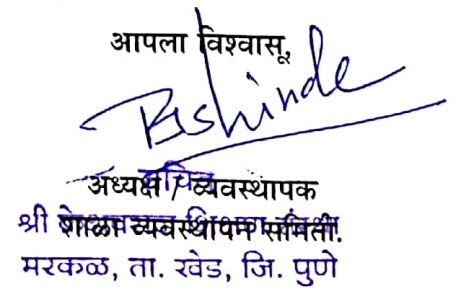 आपला विश्वासू,
Bshinde
सचिव
अध्यक्ष / व्यवस्थापक
श्री
शाळा व्यवस्थापन समिती.
मरकळ, ता. खेड, जि. पुणे